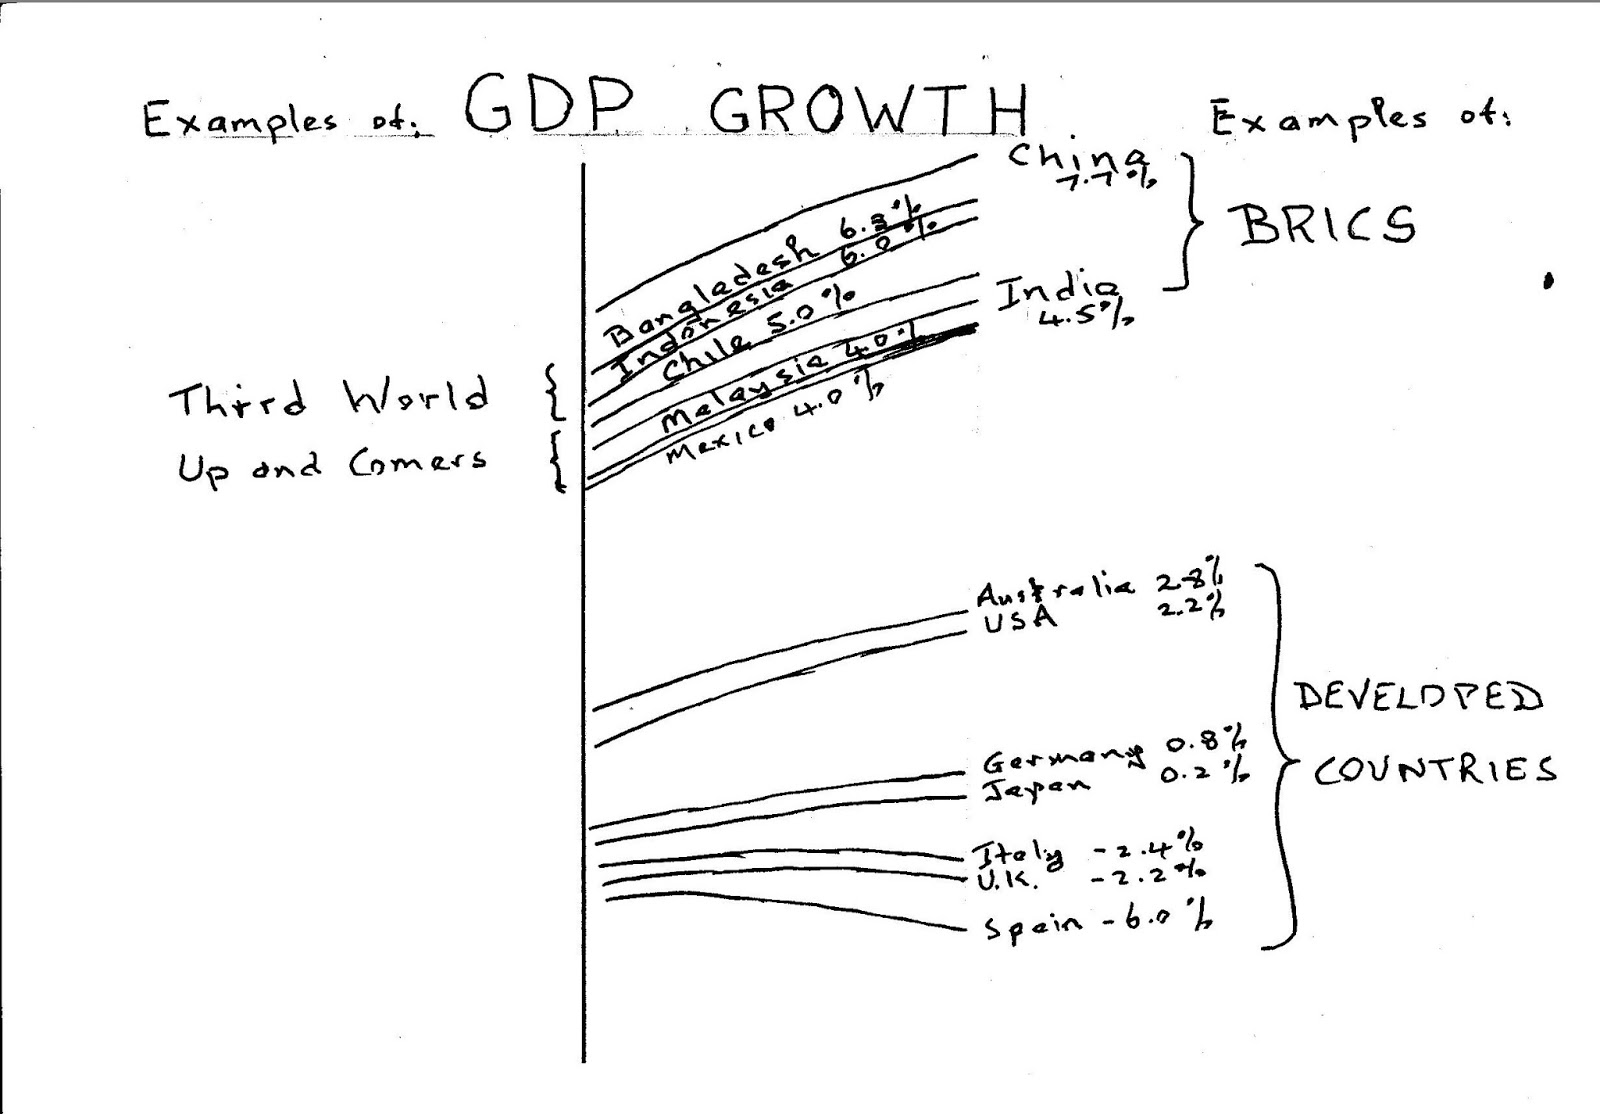 Examples of: GDP GROWTH Examples of:
China
7.7%
BRICS
Bangladesh 6.3%
Indonesia 6.0%
Chile 5.0%
India
4.5%
Malaysia 4.0%
Mexico 4.0%
Third World
Up and Comers
Australia 2.8%
USA 2.2%
Germany 0.8%
Japan 0.2%
DEVELOPED
COUNTRIES
Italy -2.4%
U.K. -2.2%
Spain -6.0%